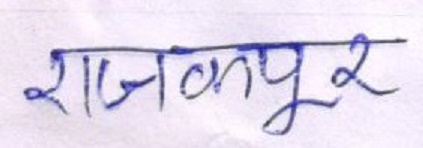 राजकपूर